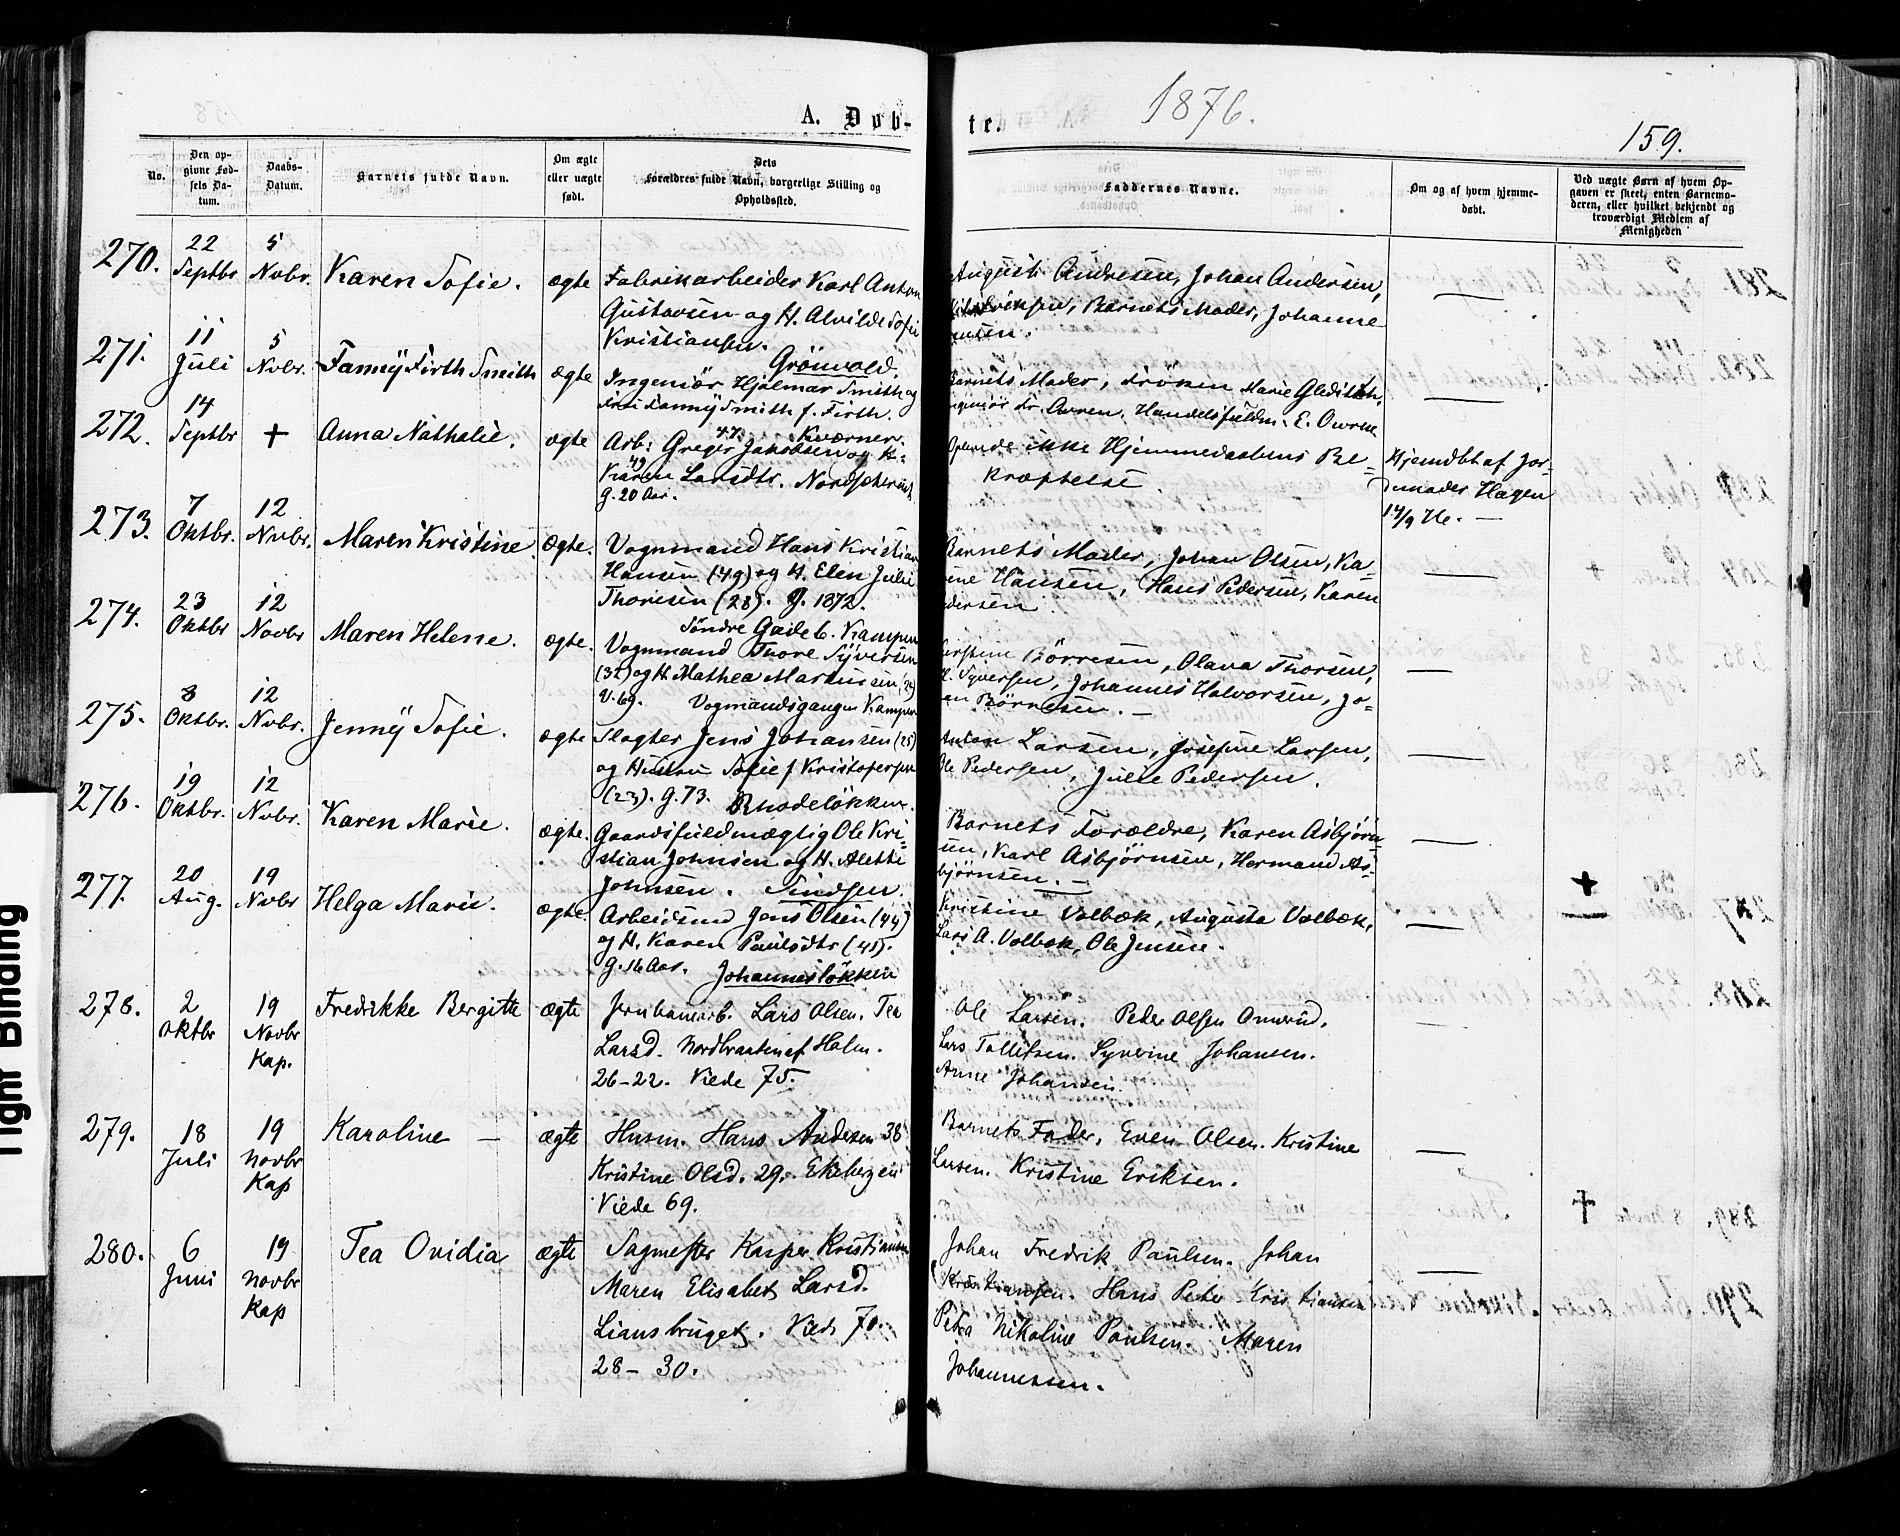 A. Døb-
te.
1876.
159.
No.
Den op-
givne Fød-
sels Da-
tum.
Daabs-
Datum.
Barnets fulde Navn.
Om ægte
eller uægte
født.
Dets
Forældres fulde Navn, borgerlige Stilling og
Opholdssted.
Faddernes Navne.
Om og af hvem hjemme-
døbt.
Ved uægte Børn af hvem Op-
gaven er skeet, enten Barnemo-
deren, eller hvilket bekjendt og
troværdigt Medlem af
Menigheden
270. 22 Septbr 5 Novbr. Karen Sofie. ægte
Fabrikarbeider Karl Anton
Gustavsen og H. Alvilde Sofie
Kristiansen.
August Andresen, Johan Andersen,
Barnets Moder, Johanne
—
Grönvold.
271. 11 Juli 5 Novbr. Fanny Firth Smith ægte
Ingeniör Hjalmar Smith og
Fanny Smith f. Firth.
Barnets Moder, Fröken Marie Gleditsch,
Handelsfuldm. E.
—
Kværner.
272. 14 Septbr + Anna Nathalie. ægte
47.
Arb: Greger Jakobsen og H:
49
Karen Larsdtr.
g. 20 Aar.
ikke Hjemmedaabens Be-
kræftelse
Hjemdbt af Jor-
demoder Hagen
14/9 76. —
273. 7 Oktbr. 12 Novbr. Maren Kristine ægte.
Vognmand Hans Kristian
Hansen (49) og H. Elen Julie
Thoresen (28). g. 1872.
Barnets Moder, Johan Olsen, Ka-
Hansen, Hans Pedersen, Karen
—
Söndre Gade 6. Kampen
274. 23 Oktbr 12 Novbr Maren Helene. ægte.
Vognmand Thore Syversen
(32) og H. Mathea Martinsen (24)
V. 69. Vogmandsgangen Kampen
Börresen, Olava Thorsen,
Syversen, Johannes Halvorsen, Jo-
Börresen. —
—
275. 8 Oktbr. 12 Novbr. Jenny Sofie. ægte
Slagter Jens Johansen (25)
og Hustru Sofie f Kristofersen
(23). g. 73. Rhodeløkken.
Anton Larsen, Josefine Larsen,
Ole Pedersen, Julie Pedersen.
—
276. 19 Oktbr. 12 Novbr. Karen Marie. ægte.
Gaardsfuldmægtig Ole Kri-
stian Johnsen og H. Alette
Johnsen.
Barnets Forældre, Karen Asbjørn-
sen, Karl Asbjørnsen, Herman As-
bjørnsen. —
—
277. 20 Aug. 19 Novbr Helga Marie. ægte
Arbeidsmd Jens Olsen (44)
og H. Karen Paulsdtr (45).
g. 16 Aar. Johannesløkken
Kristine Volbæk, Augusta Volbæk,
Lars A. Volbæk, Ole Jensen.
—
+
278. 2 Oktbr 19 Novbr Kap. Fredrikke Bergitte ægte
Jernbanearb. Lars Olsen. Tea
Larsd. Nordbraaten af Holm.
26-22. Viede 75.
Ole Larsen. Peder Olsen Omerud.
Lars Tollefsen. Syverine Johansen.
Anne Johansen.
—
279. 18 Juli 19 Novbr Kap Karoline — ægte
Husm. Hans Andersen 38
Kristine Olsd. 29. Ekebergen
Viede 69.
Barnets Fader. Even Olsen. Kristine
Larsen. Kristine Eriksen.
—
280. 6 Juni 19 Novbr Kap Tea Ovidia ægte
Sagmester Kasper Kristiansen
Maren Elisabet Larsd.
Liansbruget. Viede 70.
28 - 30.
Johan Fredrik Paulsen. Johan
Kristiansen. Hans Peter Kristiansen
Petra Nikoline Paulsen. Maren
Johannessen.
—
Tight Binding